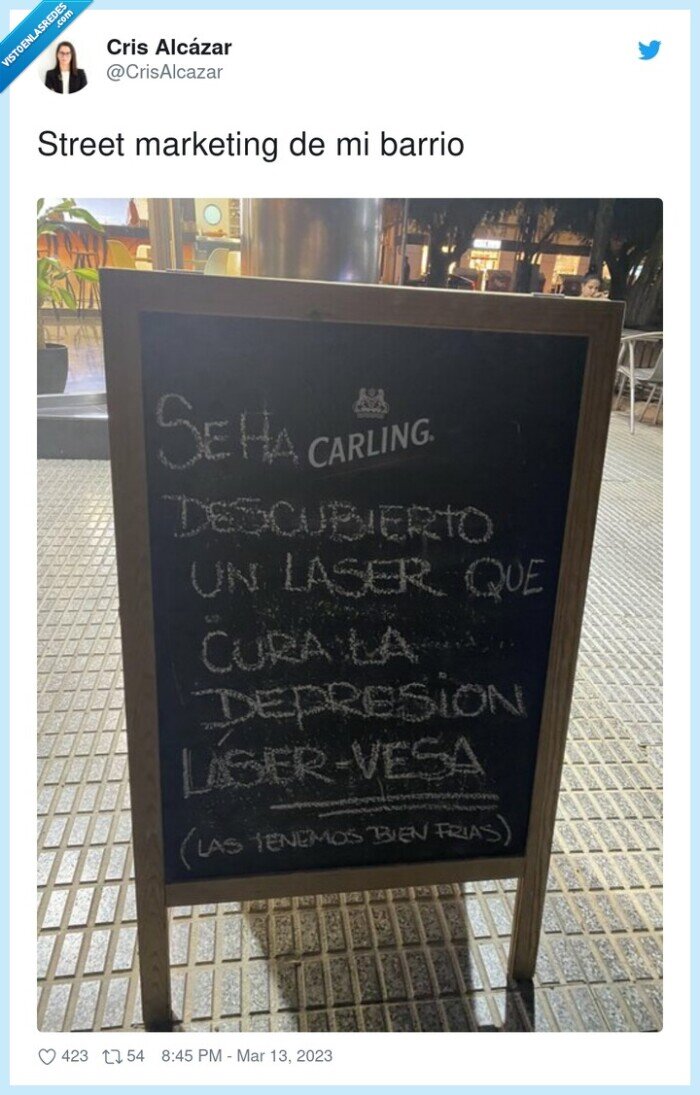 VISTOENLASREDES
.com
Cris Alcázar
@CrisAlcazar
Street marketing de mi barrio
SE HA CARLING
DESCUBIERTO
UN LASER QUE
CURA LA
DEPRESIÓN
LASER-VESA
(LAS TENEMOS BIEN FRIAS)
423 54 8:45 PM - Mar 13, 2023